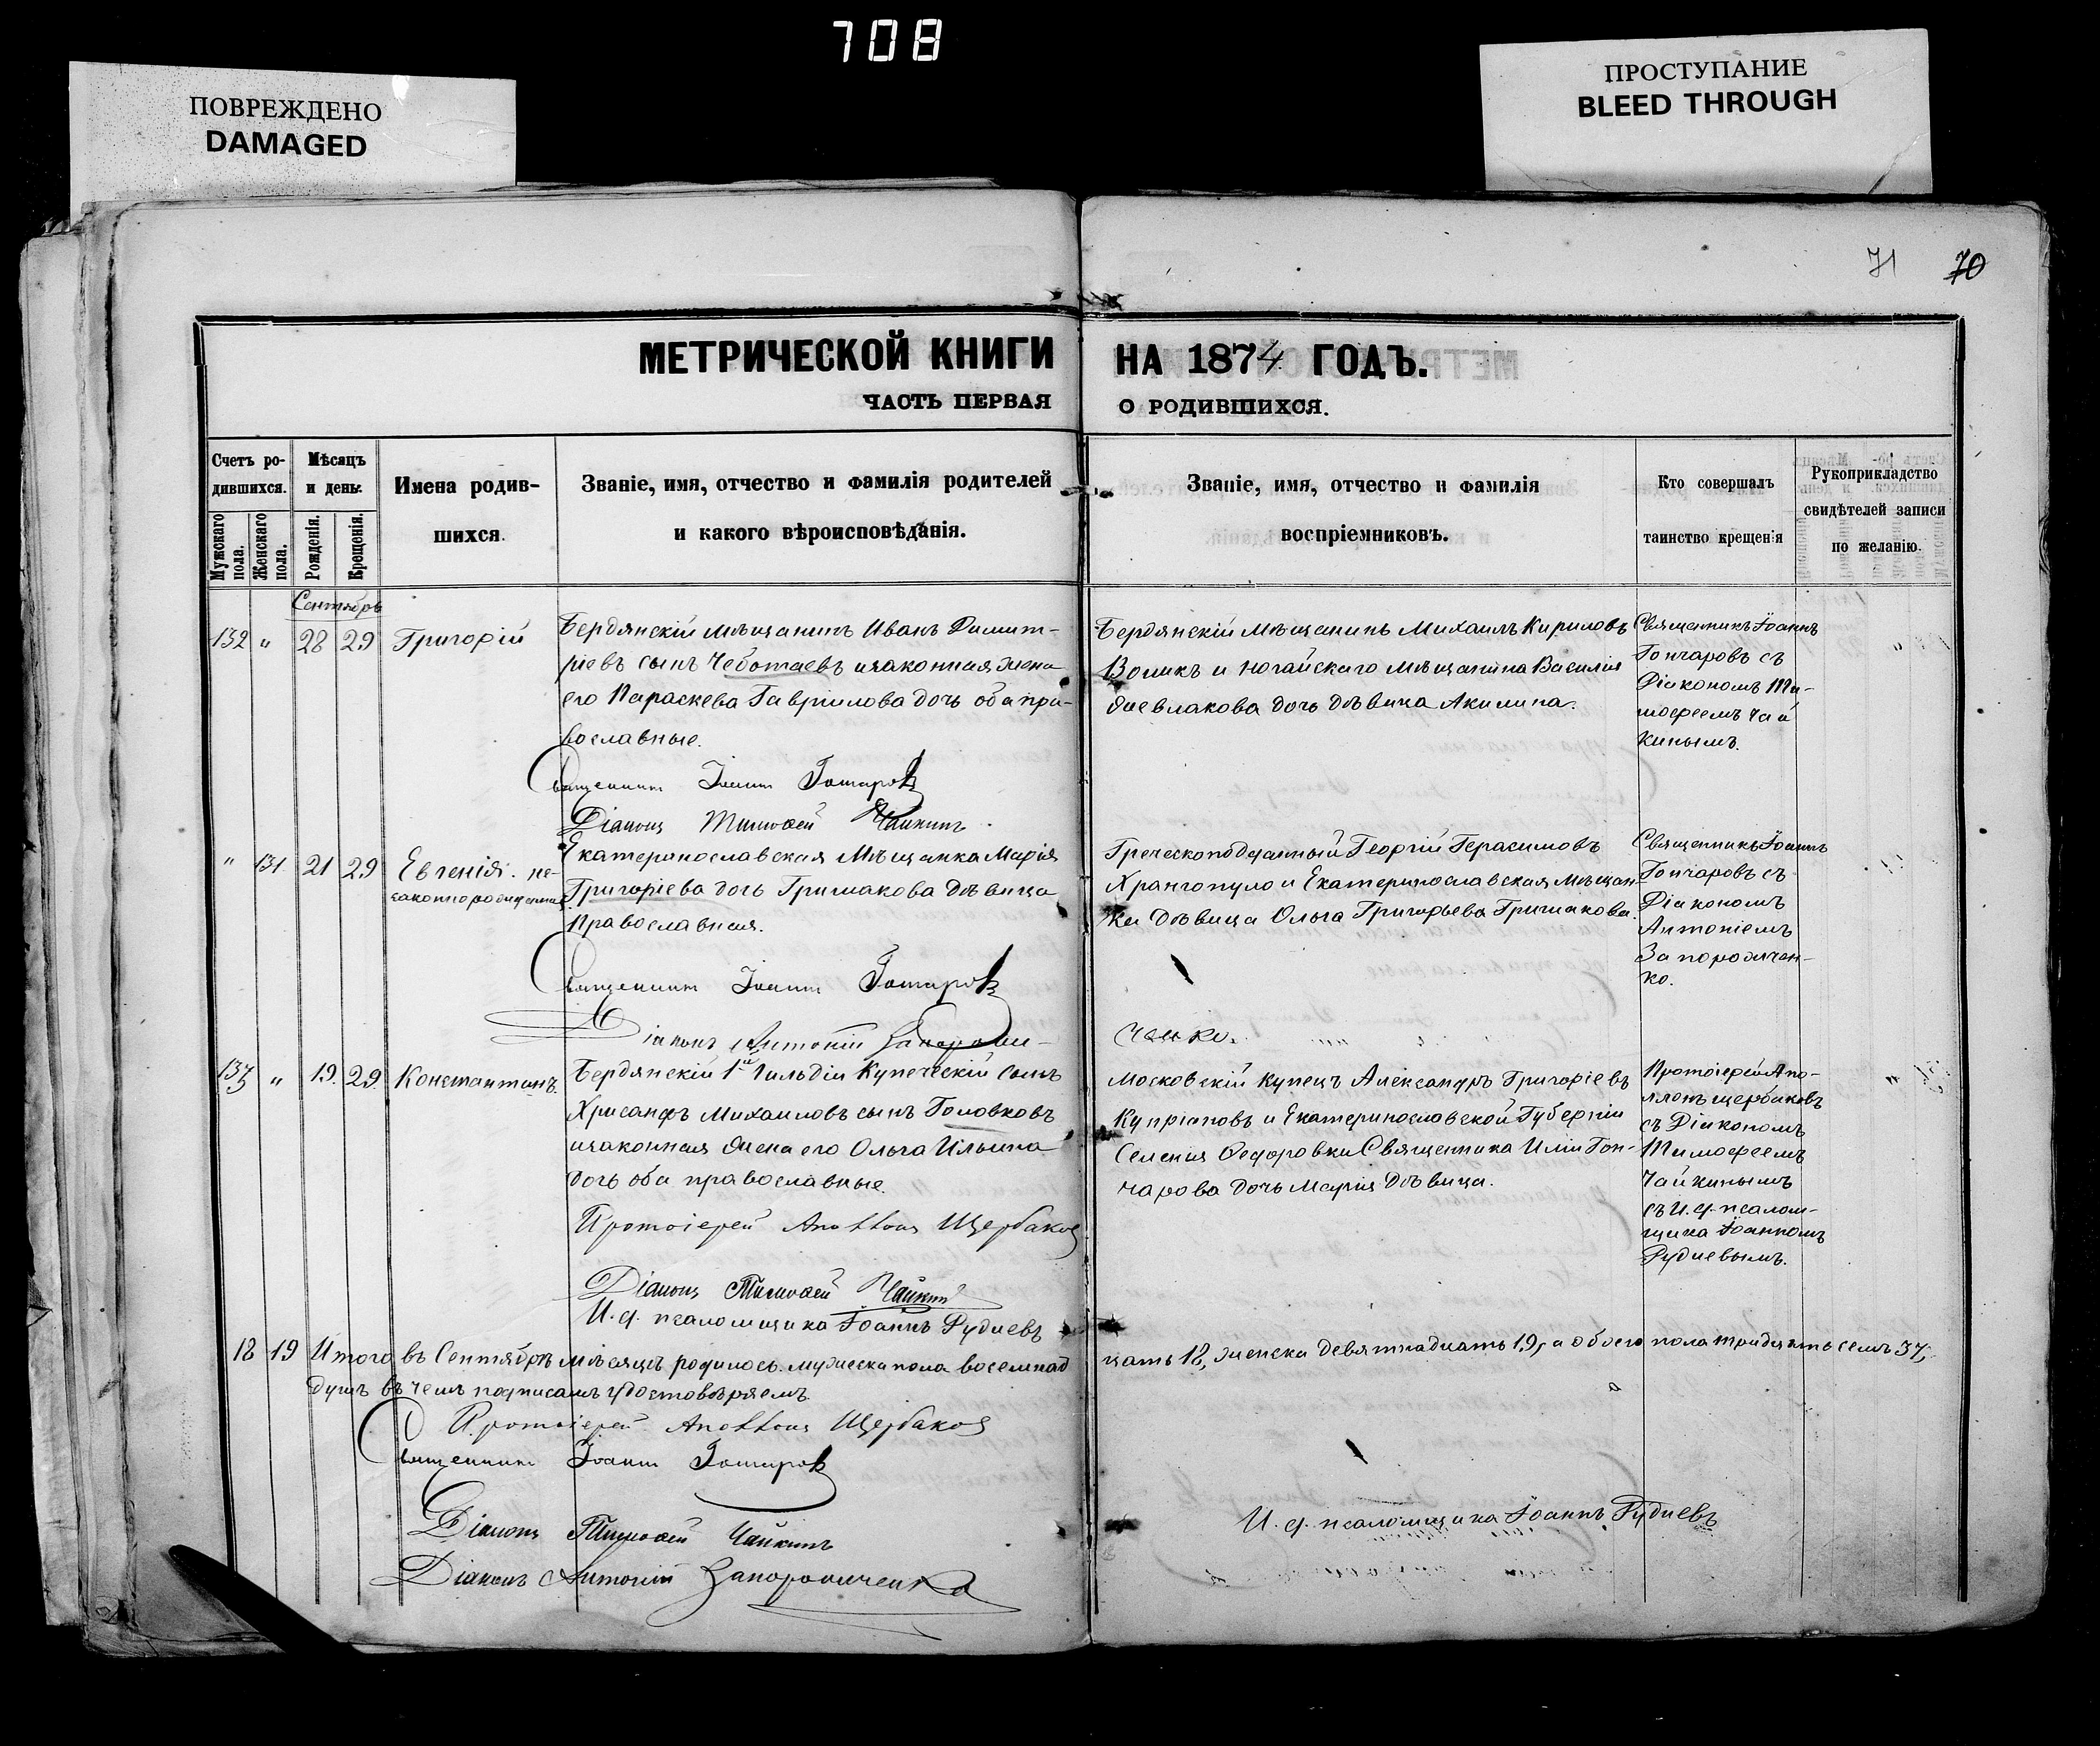 708
ПОВРЕЖДЕНО
DAMAGED
ПРОСТУПАНИЕ
BLEED THROUGH
71 70
МЕТРИЧЕСКОЙ КНИГИ НА 1874 ГОДЪ.
ЧАСТЬ ПЕРВАЯ О РОДИВШИХСЯ.
Счетъ ро-
дившихся.
Мужскаго пола.
Женскаго пола.
Мѣсяцъ
и день.
Рожденія.
Крещенія.
Имена родив-
шихся.
Званіе, имя, отчество и фамилія родителей
и какого вѣроисповѣданія.
Званіе, имя, отчество и фамилія
воспріемниковъ.
Кто совершалъ
таинство крещенія
Рукоприкладство
свидѣтелей записи
по желанію.
Сентябрь
132 " 28 29 Григорій
Бердянскій мѣщанинъ Иванъ Димит-
ріевъ сынъ Чеботаевъ изаконная жена
его Параскева Гавріилова дочь оба пра-
вославные.
Бердянскій мѣщанинъ Михаилъ Кириловъ
Воликъ и Ногайскаго мѣщанина Василія
дочь дѣвица Акилина.
Священникъ Іоаннъ
Гончаровъ съ
Діакономъ Ти-
мофеемъ Чай
кинымъ.
Священникъ Іоаннъ Гончаровъ
Діаконъ Тимофей Чайкинъ
" 131 21 29 Евгенія. не-
законнорожденная
Екатеринославская Мѣщанка Марія
Григоріева дочь Гришакова дѣвица
Православная.
Греческоподданный Георгій Герасимовъ
Хрангопуло и Екатеринославская мѣщан-
ка дѣвица Ольга Григорьева Гришакова.
Священникъ Іоаннъ
Гончаровъ съ
Діакономъ
Антоніемъ
Запорожчен-
ко.
Священникъ Іоаннъ Гончаровъ
Діаконъ Антоній Запорож-
ченко.
133 " 19 29 Константинъ.
Бердянскій 1й Гильдіи Купеческій сынъ
Хрисанфъ Михаиловъ сынъ Головковъ
изаконная жена его Ольга Ильина
дочь оба православные.
Московскій купецъ Александръ Григоріевъ
Купріановъ и Екатеринославской Губерніи
Селенія Федоровки Священника Иліи Гон-
чарова дочь Марія дѣвица.
Протоіерей Апо-
ллонъ Щербаковъ
съ Діакономъ
Тимофеемъ
Чайкинымъ
съ И. д. псалом-
щика Іоанномъ
Рудневымъ.
Протоіерей Аполлонъ Щербаковъ
Діаконъ Тимофей Чайкинъ
И. д. псаломщика Іоаннъ Рудневъ
18 19 Итого въ Сентябрѣ мѣсяцѣ родилось. мужеска пола восемнад
цать 18, женска девятнадцать 19, а обоего пола тридцать семь 37,
душъ въ чемъ подписамъ удостовѣряемъ.
Протоіерей Аполлонъ Щербаковъ
Священникъ Іоаннъ Гончаровъ
Діаконъ Тимофей Чайкинъ
Діаконъ Антоній Запорожченко
И. д. псаломщика Іоаннъ Рудневъ